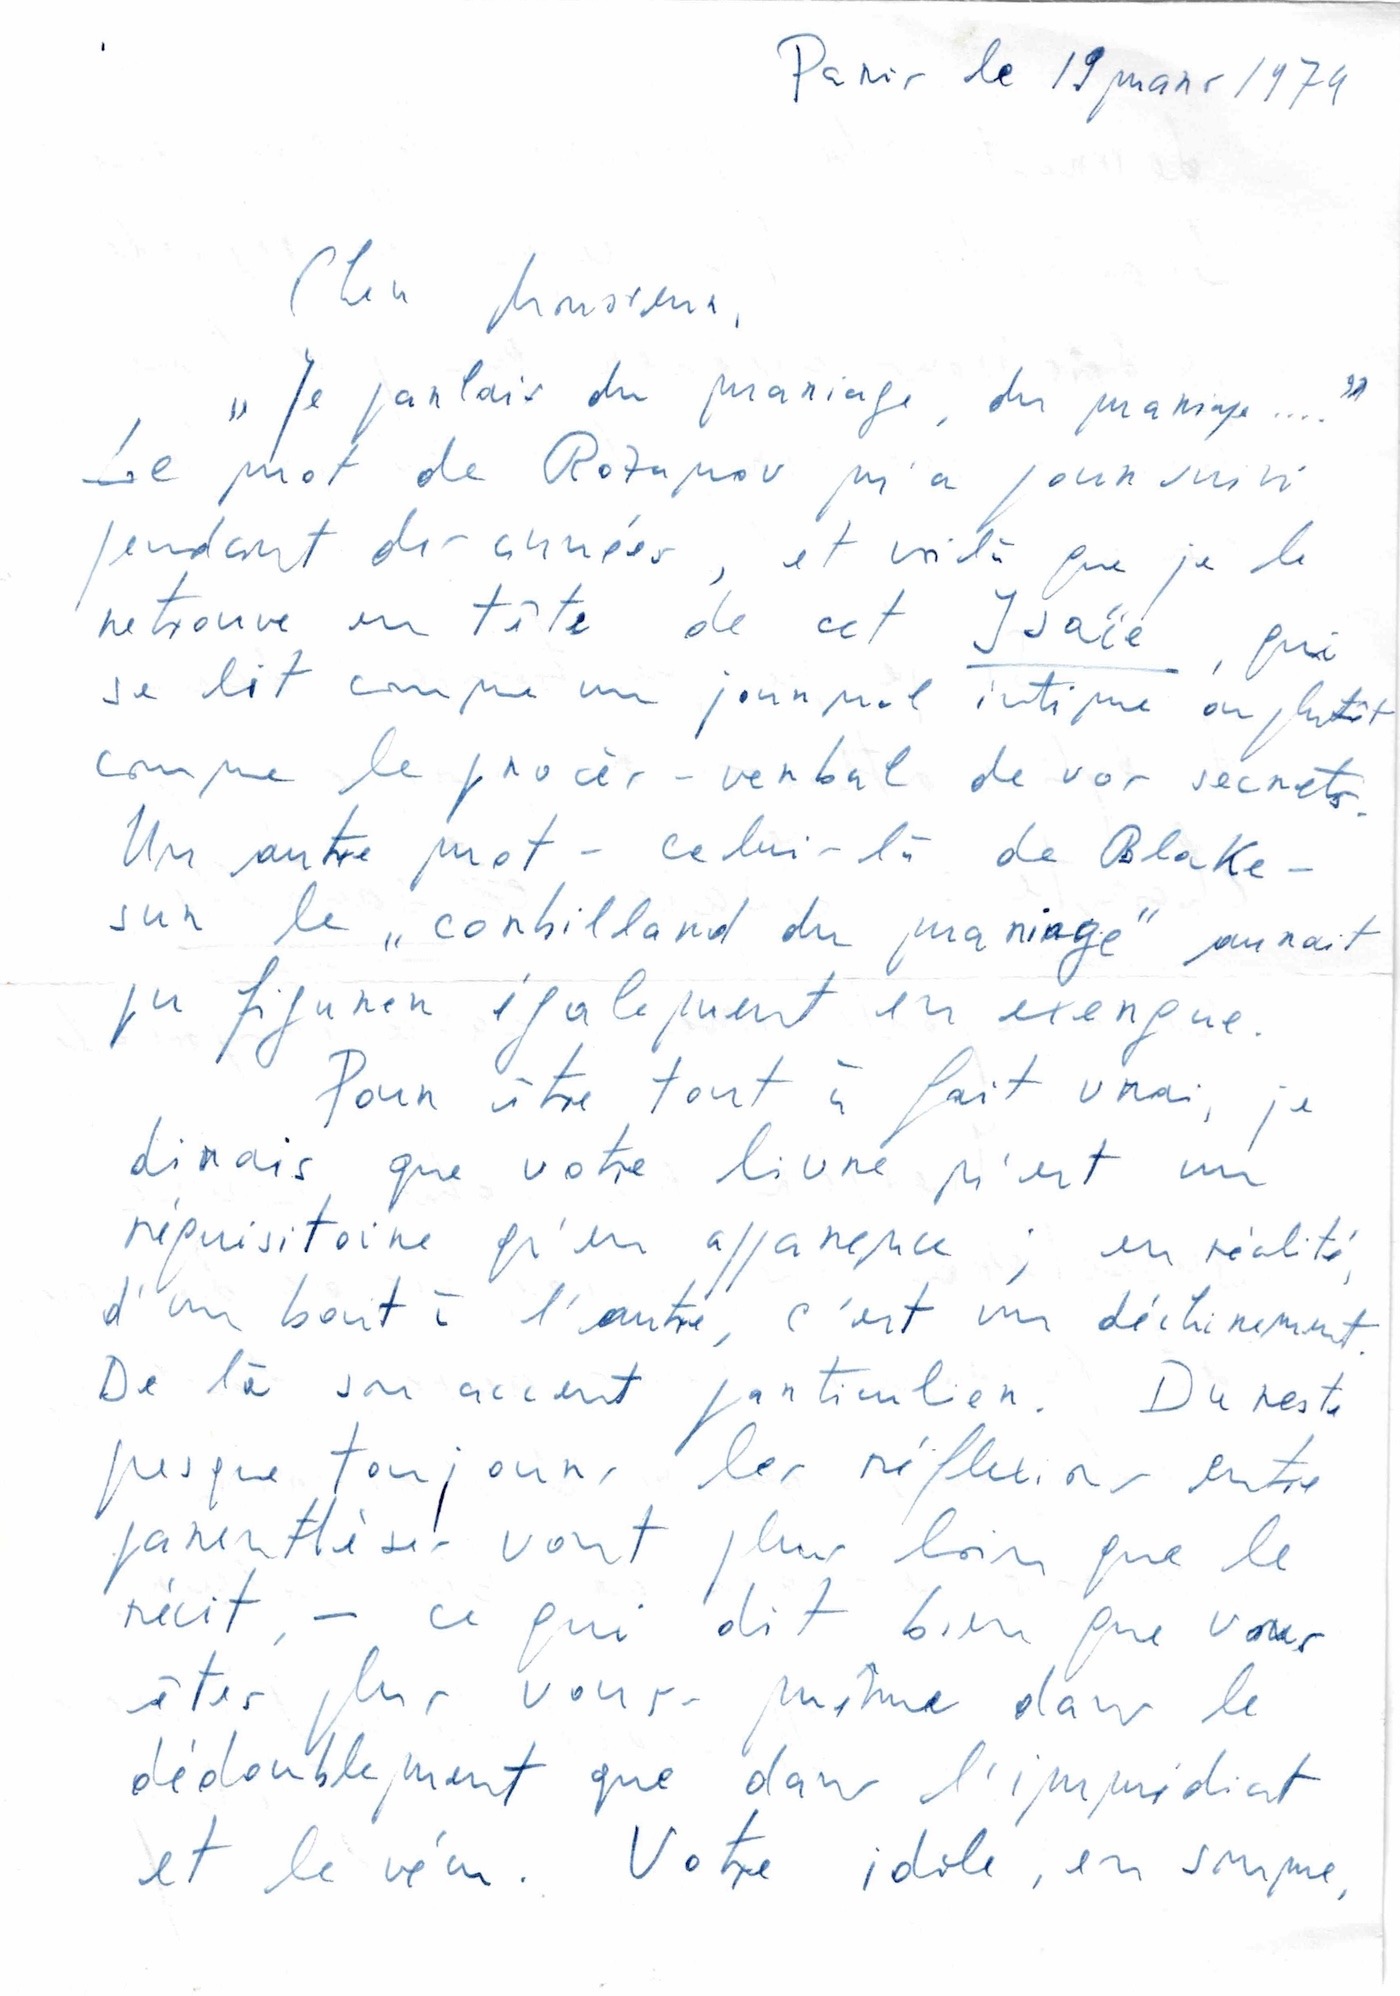 Paris le 19 mars 1974
Cher Monsieur,
„Je parlais du mariage, du mariage...."
Le mot de Rozanov m'a poursuivi
pendant des années, et voilà que je le
retrouve en tête de cet Isaïe, qui
se lit comme un journal intime ou plutôt
comme le procès-verbal de vos secrets.
Un autre mot – celui-là de Blake –
sur le „corbillard du mariage" aurait
pu figurer également en exergue.
Pour être tout à fait vrai, je
dirais que votre livre n'est un
réquisitoire qu'en apparence ; en réalité,
d'un bout à l'autre, c'est un déchirement.
De là son accent particulier. Du reste
presque toujours les réflexions entre
parenthèses vont plus loin que le
récit, – ce qui dit bien que vous
êtes plus vous-même dans le
dédoublement que dans l'immédiat
et le vécu. Votre idole, en somme,